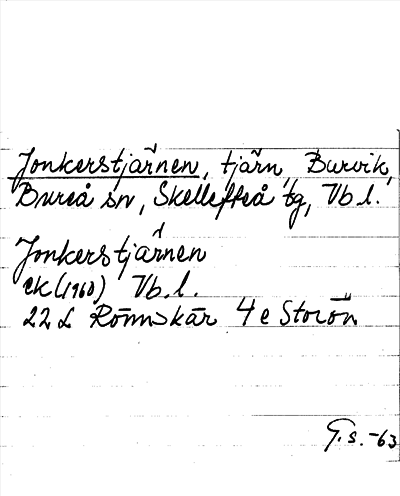 Jonkerstjärnen, tjärn, Burvik,
Bureå sn, Skellefteå tg, Vb.l.
Jonkerstjärnen
ek (1960) Vb.l.
22 L Rönnskär 4 e Storön
G.s. -63